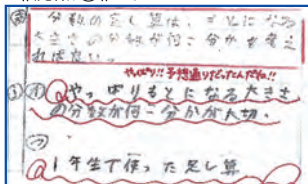 分数の足し算は、もとになる
大きさの分数が何こ分かを考え
れば良い。
やっぱり!!予想通りだったんだね!!
やっぱりもとになる大きさ
の分数が何こ分かが大切。
1年生で使った足し算